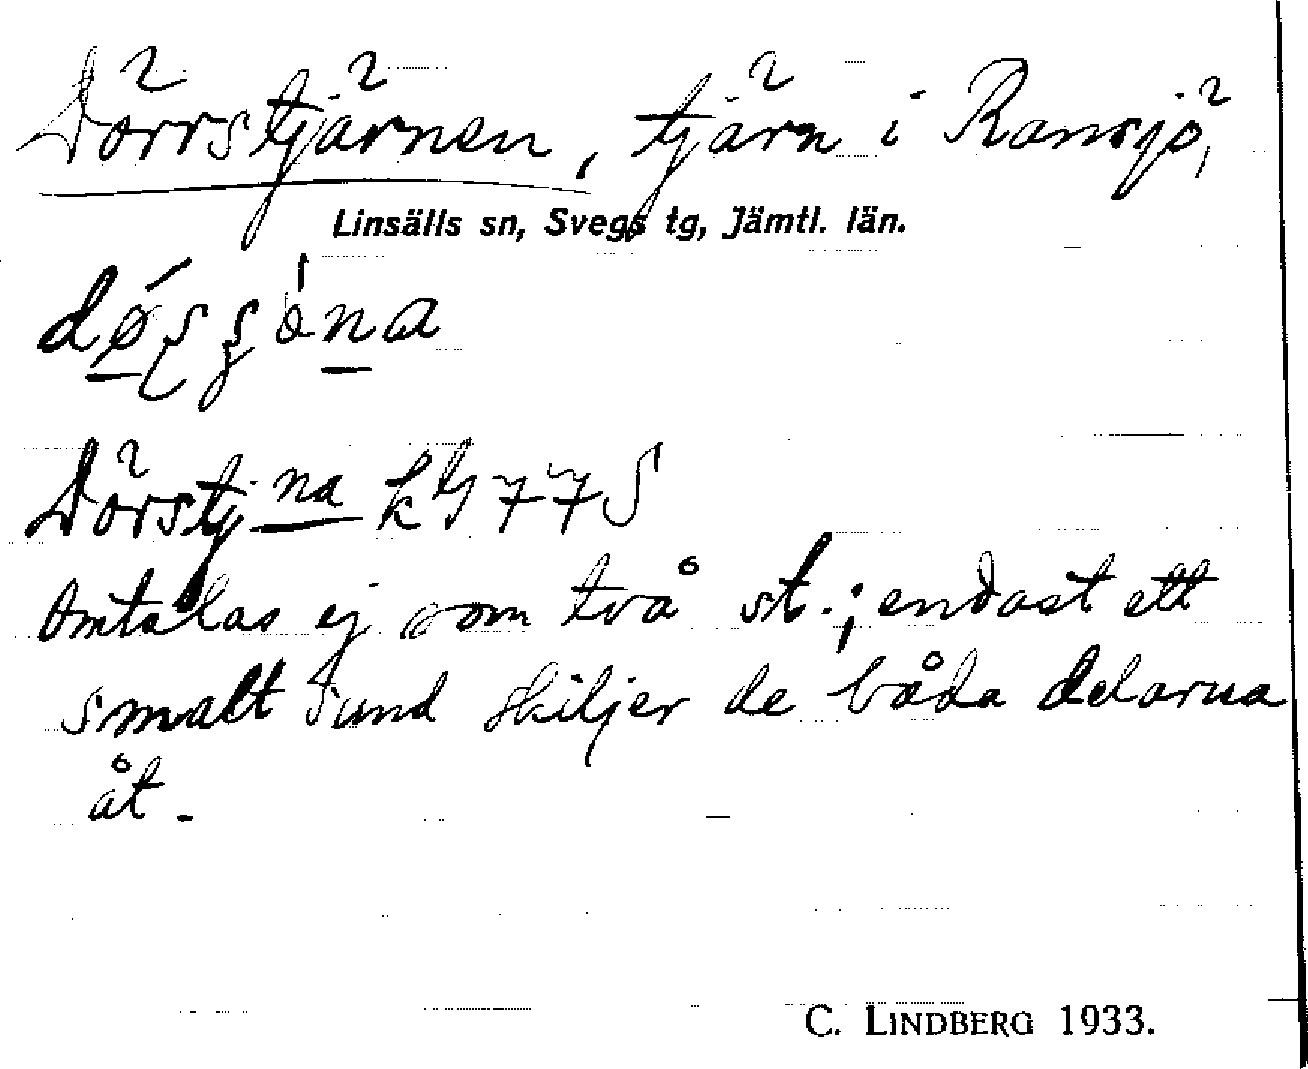 Dörrstjärnen, tjärn i Ransjö,
Linsälls sn, Svegs tg, Jämtl. län.
Dörstj na
Omtalas ej som två st.; endast ett
smalt sund skiljer de båda delarna
åt.
C. LINDBERG 1933.